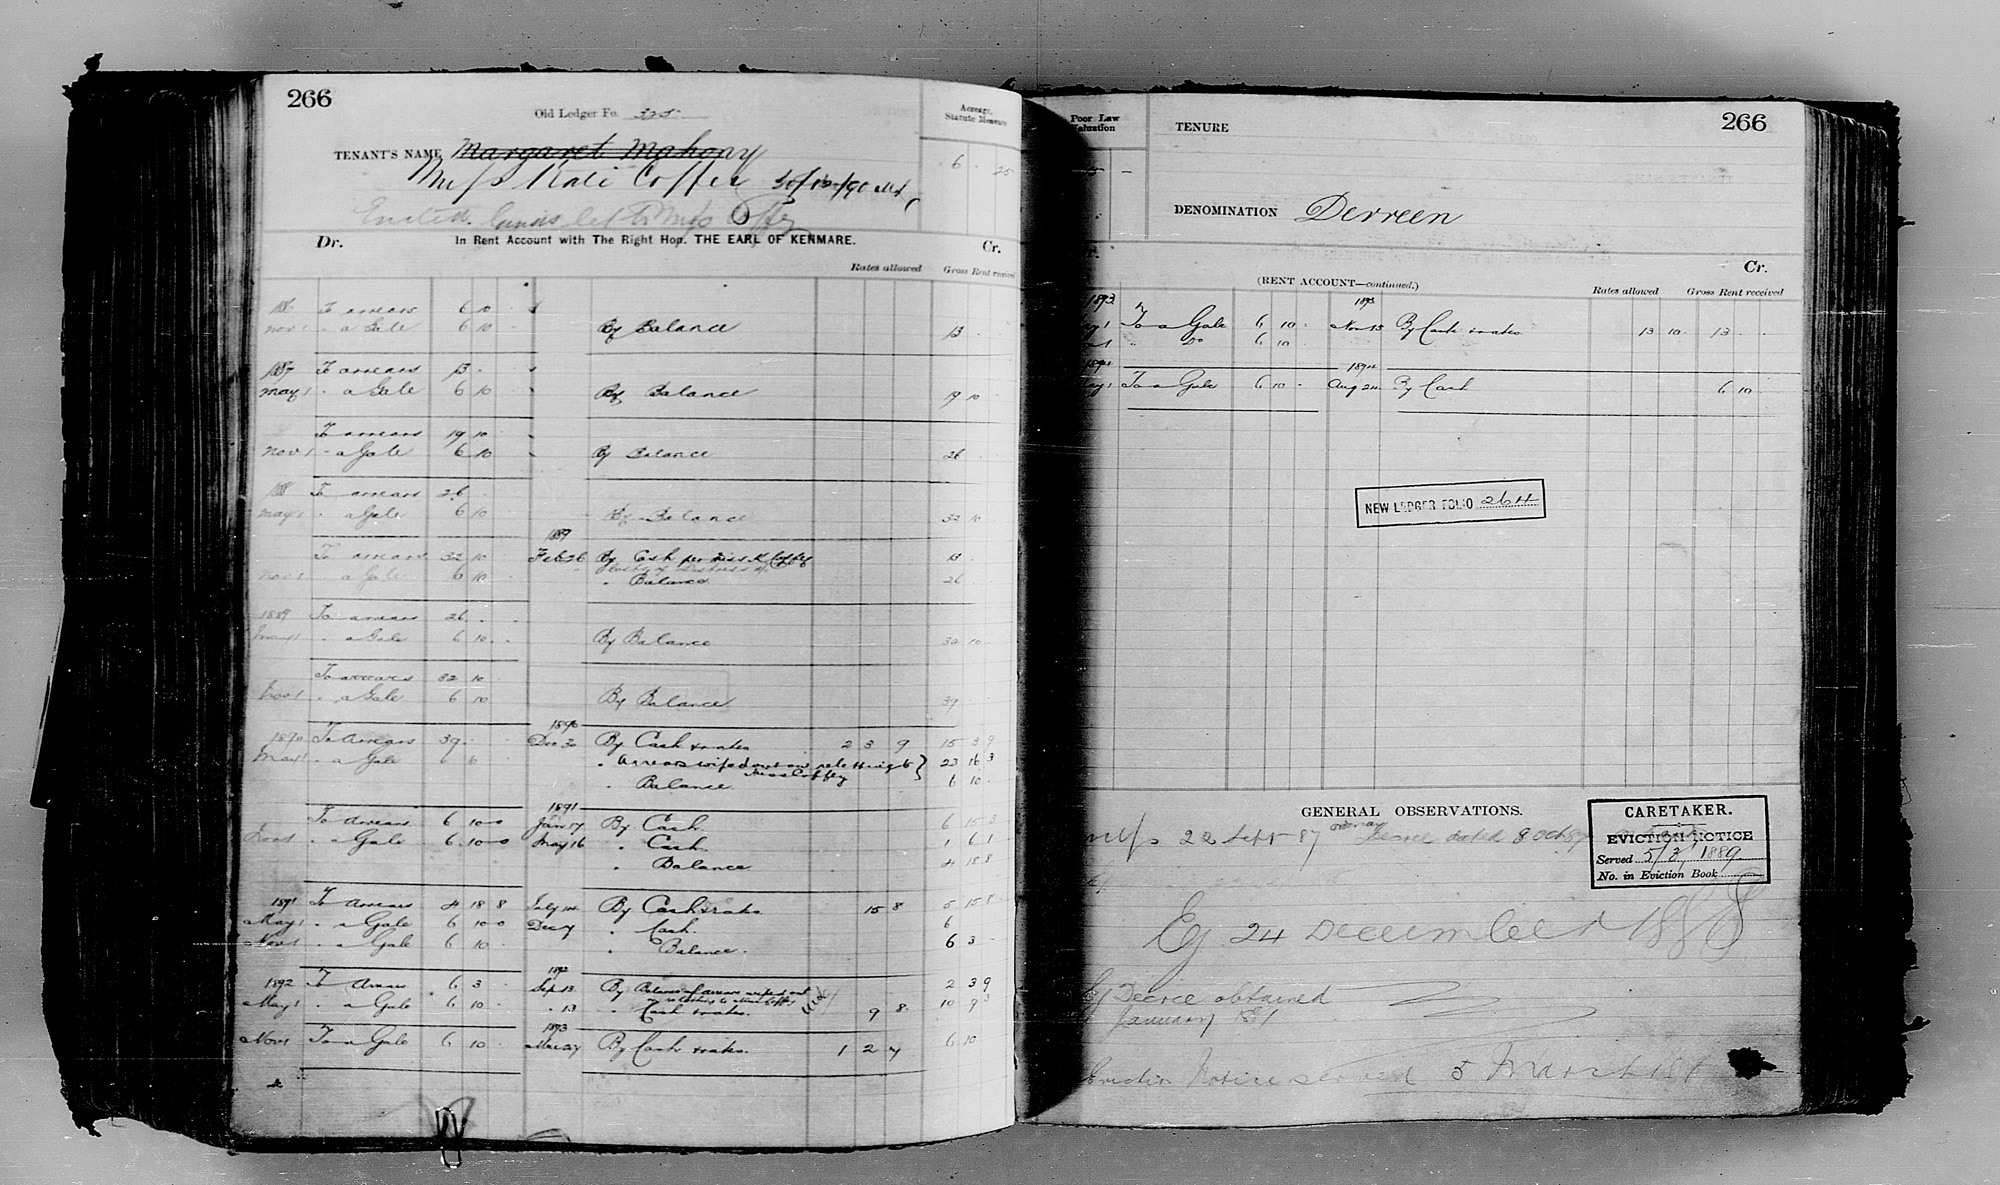 266
Old Ledger Fo. 325
Acreage, Statute Measure
TENANT'S NAME Margaret Mahony
6 25
Miss Kate Coffee 30/12/90
Evicted. lands let to Miss Coffey
Dr. In Rent Account with The Right Hon. THE EARL OF KENMARE. Cr.
Rates allowed Gross Rent received
To arrears 6 10
Nov 1 " a Gale 6 10 By Balance 13
1887 To arrears 13
May 1 " a Gale 6 10 By Balance 19 10
To arrears 19 10
Nov 1 " a Gale 6 10 By Balance 26
To arrears 26
May 1 " a Gale 6 10 By Balance 32 10
1889
To arrears 32 10 Feb 26 By Cash per Miss K Coffey 13
Nov 1 " a Gale 6 10 " Balance 26
1889 To arrears 26
May 1 " a Gale 6 10 By Balance 32 10
To arrears 32 10
Nov 1 " a Gale 6 10 By Balance 39
1890
1890 To Arrears 39 Dec 30 By Cash & rates 2 3 9 15 3 9
May 1 " a Gale 6 " Arrears wiped out on reletting to Miss Coffey 23 16 3
" Balance 6 10
1891
To Arrears 6 10 0 Jan 17 By Cash 6 15 3
Nov 1 " a Gale 6 10 0 May 16 " Cash 1 6 1
" Balance 4 18 8
1891 To Arrears 4 18 8 July 14 By Cash & rates 15 8 5 15 8
May 1 " a Gale 6 10 0 Dec 7 " Cash 6
Nov 1 " a Gale 6 10 " Balance 6 3
1892
1892 To Arrears 6 3 Sep 13 By Balance of arrears wiped out on reletting to Miss Coffey 2 3 9
May 1 " a Gale 6 10 " 13 " Cash & rates 9 8 10 9 3
1893
Nov 1 To a Gale 6 10 Mar 27 By Cash & rates 1 2 7 6 10
Poor Law Valuation
TENURE
266
DENOMINATION Derreen
Cr.
(RENT ACCOUNT—continued.)
Rates allowed Gross Rent received
1893 1893
May 1 To a Gale 6 10 Nov 13 By Cash & rates 13 10 13
" Do 6 10
1894 1894
May 1 To a Gale 6 10 Aug 24 By Cash 6 10
NEW LEDGER FOLIO 264
GENERAL OBSERVATIONS.
22 Sept 87 Decree dated 8 Oct 87
CARETAKER.
EVICTION NOTICE
Served 5/3/1889
No. in Eviction Book
Ej 24 December 1888
Ej Decree obtained
January
Eviction Notice served 5 March